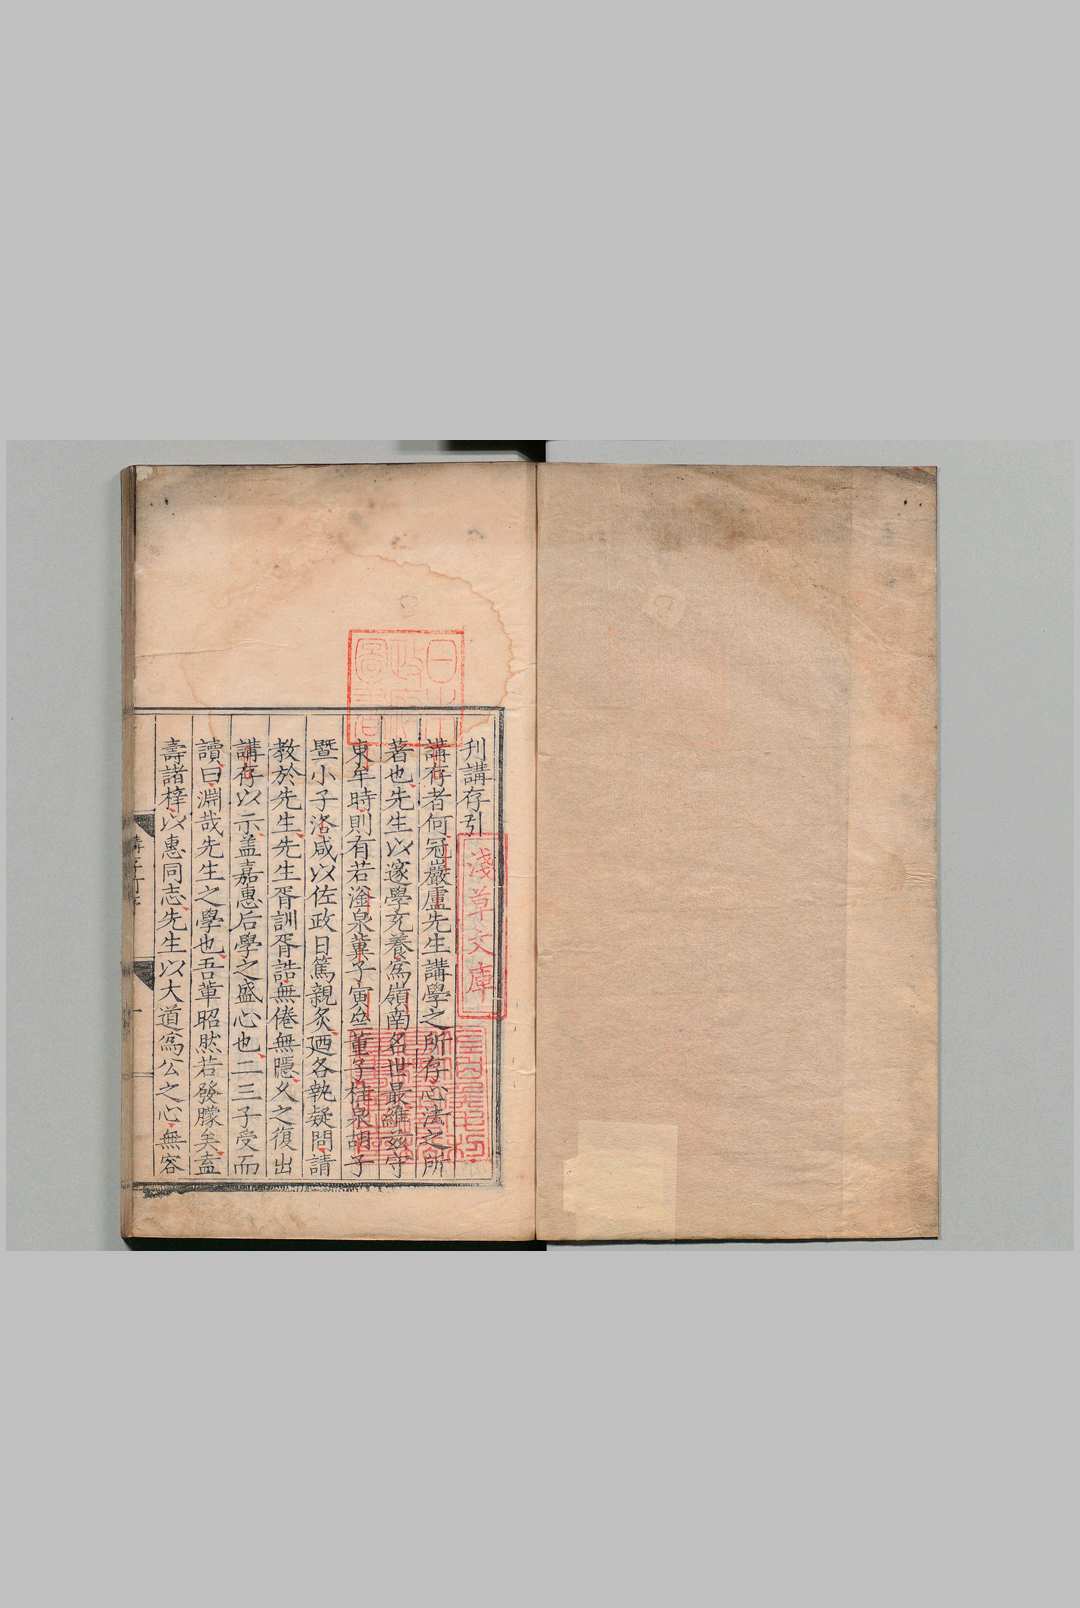 刊講存引
講存者何冠巖盧先生講學之所存心法之所
著也先生以邃學充養爲嶺南名世最維茲守
東牟時則有若滏泉冀子寅㕘董子桂泉胡子
暨小子洛咸以佐政日篤親炙廼各執疑問請
教於先生先生胥訓胥誥無倦無隱久之復出
講存以示盖嘉惠后學之盛心也二三子受而
讀曰淵哉先生之學也吾軰昭然若發矇矣盍
壽諸梓以惠同志先生以大道爲公之心無容
淺草文庫
日本
政府
圖書